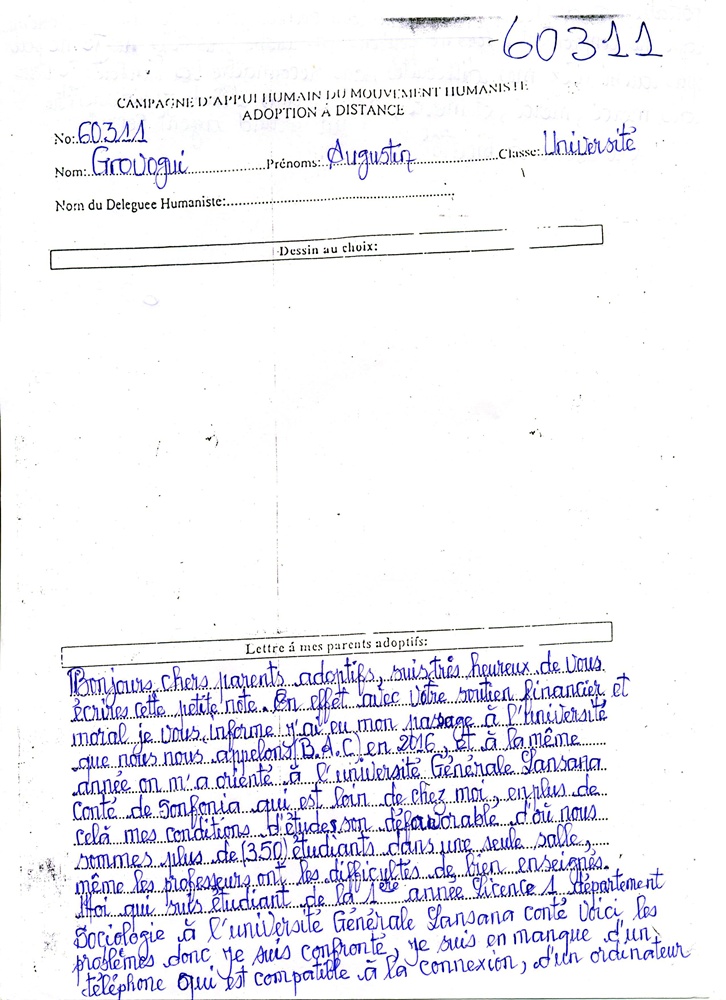 -60311
CAMPAGNE D'APPUI HUMAIN DU MOUVEMENT HUMANISTE
ADOPTION Á DISTANCE
No: 60311
Nom: Grovogui Prénoms: Augustin Classe: Université
Nom du Deleguee Humaniste:
Dessin au choix:
Lettre á mes parents adoptifs:
Bonjours chers parents adoptifs, suis très heureux de vous
écrires cette petite note. En effet avec votre soutien financier et
moral je vous informe j'ai eu mon passage à l'université
que nous nous appelons (B.A.C) en 2016, et à la même
année on m'a orienté à l'université Générale Lansana
Conté de Sonfonia qui est loin de chez moi, en plus de
celà mes conditions d'études son défavorable d'où nous
sommes plus de (350) étudiants dans une seule salle,
même les professeurs ont les difficultés de bien enseignés.
Moi qui suis étudiant de la 1ère année Licence 1 département
Sociologie à l'université Générale Lansana Conté voici les
problèmes donc je suis confronté, je suis en manque d'un
téléphone qui est compatible à la connexion, d'un ordinateur